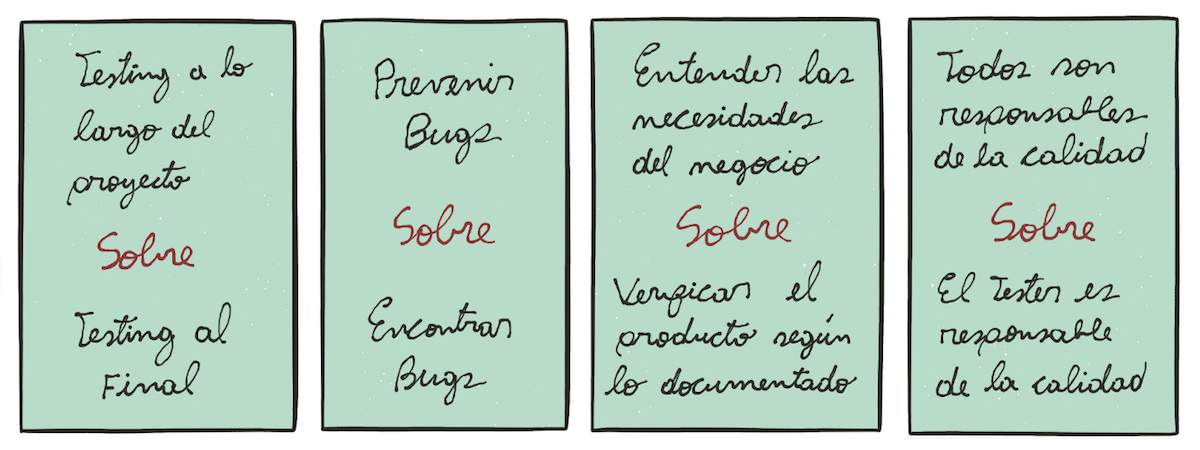 Testing a lo
largo del
proyecto
Sobre
Testing al
Final
Prevenir
Bugs
Sobre
Encontrar
Bugs
Entender las
necesidades
del negocio
Sobre
Verificar el
producto según
lo documentado
Todos son
responsables
de la calidad
Sobre
El Tester es
responsable
de la calidad